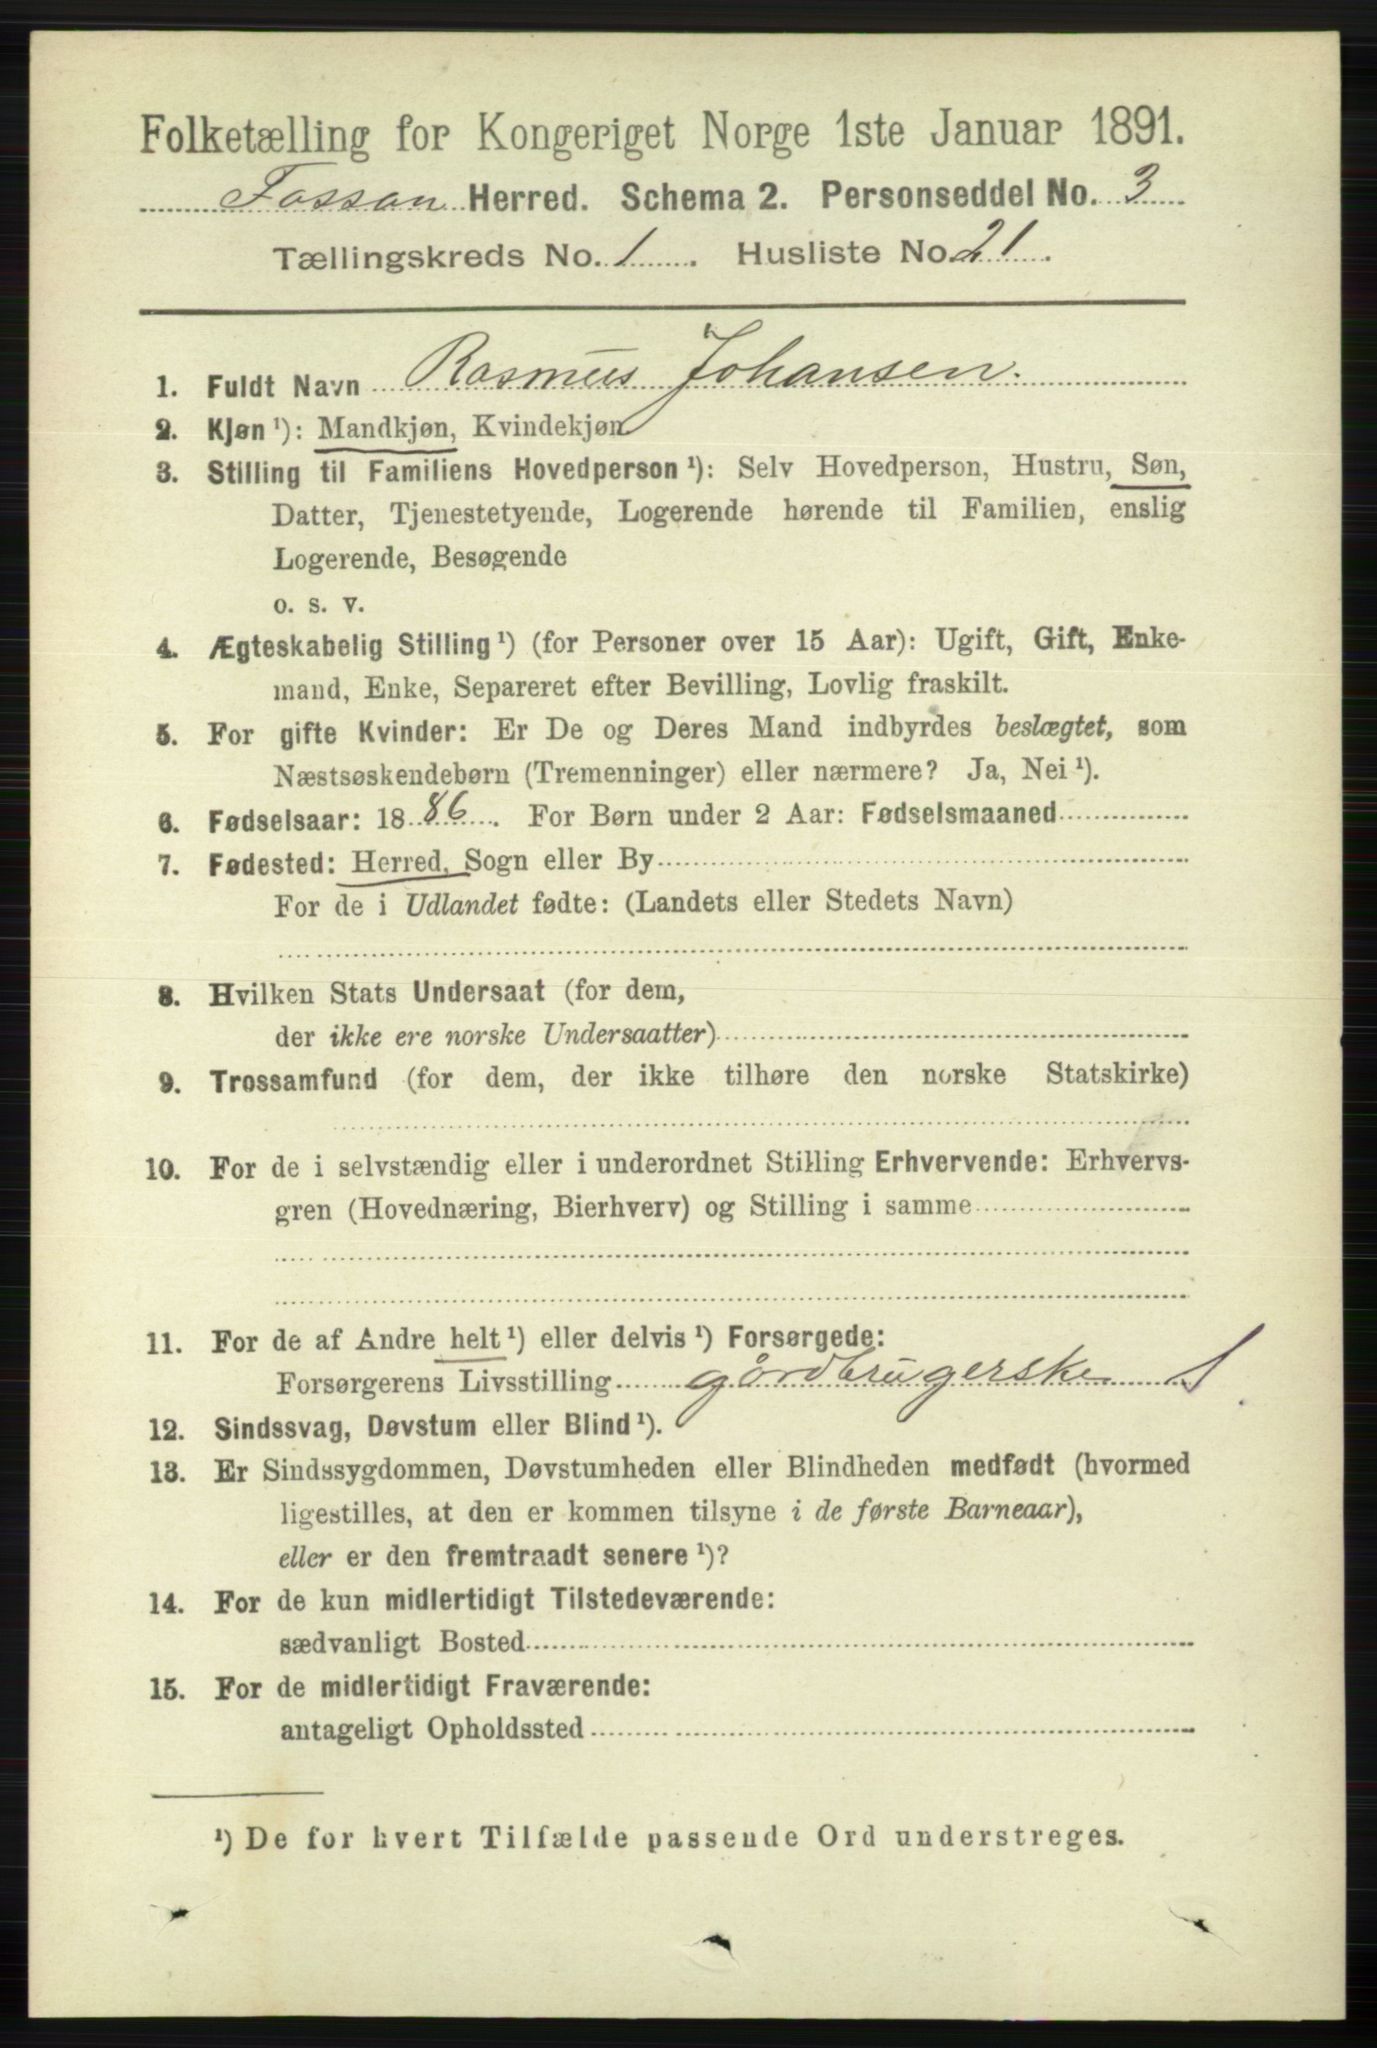 Folketælling for Kongeriget Norge 1ste Januar 1891.
Fossan Herred. Schema 2. Personseddel No. 3
Tællingskreds No. 1. Husliste No. 21.
1. Fuldt Navn Rasmus Johansen.
2. Kjøn ¹): Mandkjøn, Kvindekjøn
3. Stilling til Familiens Hovedperson ¹): Selv Hovedperson, Hustru, Søn,
Datter, Tjenestetyende, Logerende hørende til Familien, enslig
Logerende, Besøgende
o. s. v.
4. Ægteskabelig Stilling ¹) (for Personer over 15 Aar): Ugift, Gift, Enke-
mand, Enke, Separeret efter Bevilling, Lovlig fraskilt.
5. For gifte Kvinder: Er De og Deres Mand indbyrdes beslægtet, som
Næstsøskendebørn (Tremenninger) eller nærmere? Ja, Nei ¹).
6. Fødselsaar: 1886. For Børn under 2 Aar: Fødselsmaaned
7. Fødested: Herred, Sogn eller By
For de i Udlandet fødte: (Landets eller Stedets Navn)
8. Hvilken Stats Undersaat (for dem,
der ikke ere norske Undersaatter)
9. Trossamfund (for dem, der ikke tilhøre den norske Statskirke)
10. For de i selvstændig eller i underordnet Stilling Erhvervende: Erhvervs-
gren (Hovednæring, Bierhverv) og Stilling i samme
11. For de af Andre helt ¹) eller delvis ¹) Forsørgede:
Forsørgerens Livsstilling gårdbrugerske
12. Sindssvag, Døvstum eller Blind ¹).
13. Er Sindssygdommen, Døvstumheden eller Blindheden medfødt (hvormed
ligestilles, at den er kommen tilsyne i de første Barneaar),
eller er den fremtraadt senere ¹)?
14. For de kun midlertidigt Tilstedeværende:
sædvanligt Bosted
15. For de midlertidigt Fraværende:
antageligt Opholdssted
¹) De for hvert Tilfælde passende Ord understreges.